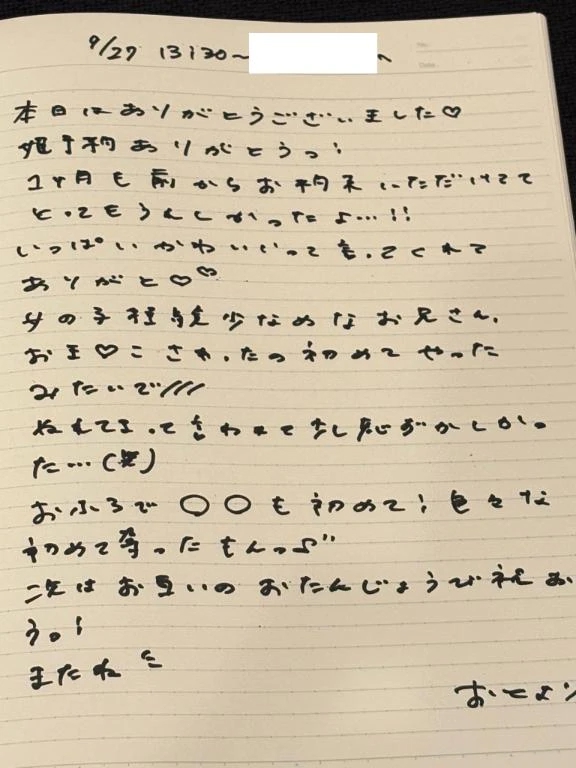 9/27 13:30〜 へ
本日はありがとうございました♡
ありがとうっ!
1ヶ月も前からお約束いただけてて
とってもうれしかったよ…!!
いっぱいかわいいって言ってくれて
ありがと♡♡
女の子経験少なめなお兄さん。
お王♡こさわったの初めてやった
みたいで///
ぬれてるって言われて少し恥ずかしかっ
た…(笑)
おふろで〇〇も初めて!色々な
初めて奪ったもんっ
次はお互いのおたんじょうび祝お
うっ!
またね